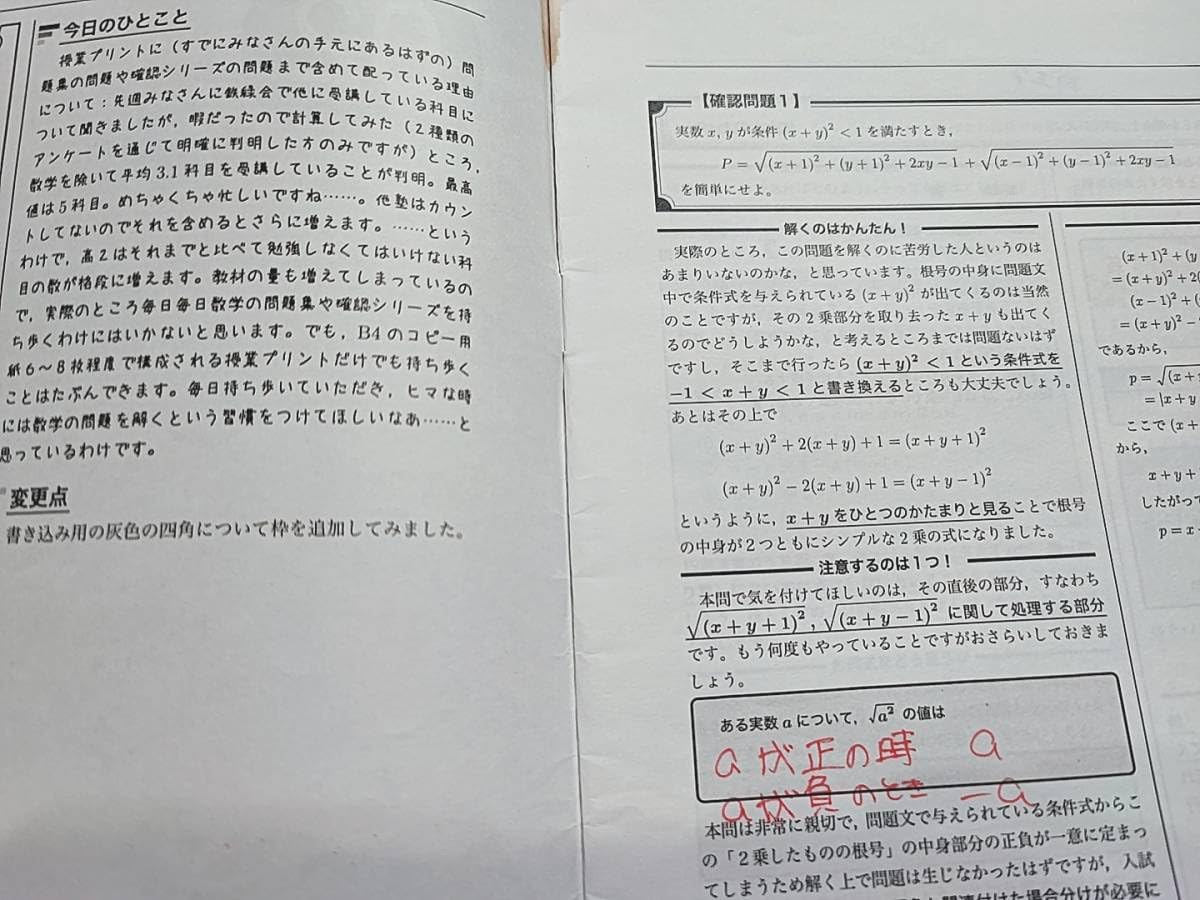 今日のひとこと
授業プリントに(すでにみなさんの手元にあるはずの)問
題集の問題や確認シリーズの問題まで含めて配っている理由
について:先週みなさんに鉄緑会で他に受講している科目に
ついて聞きましたが,暇だったので計算してみた(2種類の
アンケートを通じて明確に判明した方のみですが)ところ,
数学を除いて平均3.1科目を受講していることが判明。最高
値は5科目。めちゃくちゃ忙しいですね……。他塾はカウン
トしてないのでそれを含めるとさらに増えます。……という
わけで,高2はそれまでと比べて勉強しなくてはいけない科
目の数が格段に増えます。教材の量も増えてしまっているの
で,実際のところ毎日毎日数学の問題集や確認シリーズを持
ち歩くわけにはいかないと思います。でも,B4のコピー用
紙6~8枚程度で構成される授業プリントだけでも持ち歩く
ことはたぶんできます。毎日持ち歩いていただき,ヒマな時
には数学の問題を解くという習慣をつけてほしいなあ……と
思っているわけです。
変更点
書き込み用の灰色の四角について枠を追加してみました。
【確認問題1】
実数 x, y が条件 (x+y)² < 1 を満たすとき,
P = √((x+1)² + (y+1)² + 2xy − 1) + √((x−1)² + (y−1)² + 2xy − 1)
を簡単にせよ。
解くのはかんたん!
実際のところ,この問題を解くのに苦労した人というのは
あまりいないのかな,と思っています。根号の中身に問題文
中で条件式を与えられている (x+y)² が出てくるのは当然
のことですが,その2乗部分を取り去った x+y も出てく
るのでどうしようかな,と考えるところまでは問題ないはず
ですし,そこまで行ったら (x+y)² < 1 という条件式を
−1 < x+y < 1 と書き換えるところも大丈夫でしょう。
あとはその上で
(x+y)² + 2(x+y) + 1 = (x+y+1)²
(x+y)² − 2(x+y) + 1 = (x+y−1)²
というように,x+y をひとつのかたまりと見ることで根号
の中身が2つともにシンプルな2乗の式になりました。
注意するのは1つ!
本問で気を付けてほしいのは,その直後の部分,すなわち
√((x+y+1)²), √((x+y−1)²) に関して処理する部分
です。もう何度もやっていることですがおさらいしておきま
しょう。
ある実数 a について,√(a²) の値は
aが正の時 a
aが負のとき −a
本問は非常に親切で,問題文で与えられている条件式からこ
の「2乗したものの根号」の中身部分の正負が一意に定まっ
てしまうため解く上で問題は生じなかったはずですが,入試
関連付けた場合分けが必要に
(x+1)² + (y
= (x+y)² + 2(
(x−1)² + (
= (x+y)² −
であるから,
p = √((x+
= |x+y
ここで (x+
から,
x+y+
したがって
p = x